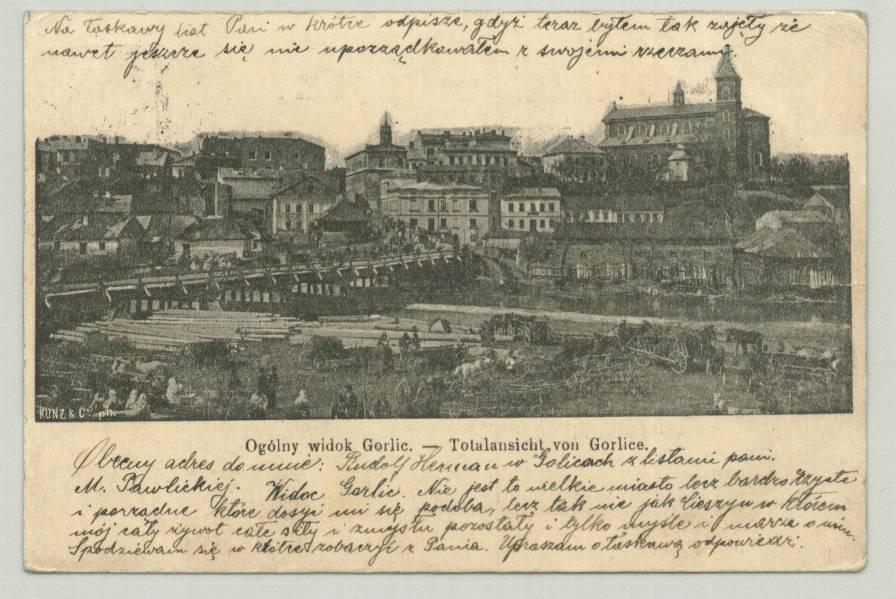 Na łaskawy list Pani w krótce odpiszę, gdyż teraz byłem tak zajęty że
nawet jeszcze się nie uporządkowałem z swojemi rzeczami
KUNZ & Co ph.
Ogólny widok Gorlic. — Totalansicht von Gorlice.
Obecny adres do mnie: Rudolf Herman w Golicach z listami pani.
M. Pawlickiej. Widoc Gorlic. Nie jest to wielkie miasto lecz bardzo
i porządne które dosyi mi się podoba, lecz tak nie jak Cieszyn w którem
mój cały żywot całe siły i zmysły pozostały i tylko myślę i marzę o nim.
Spodziewam się w krótce zobaczyć z Pania. Upraszam o łaskawą odpowiedź.